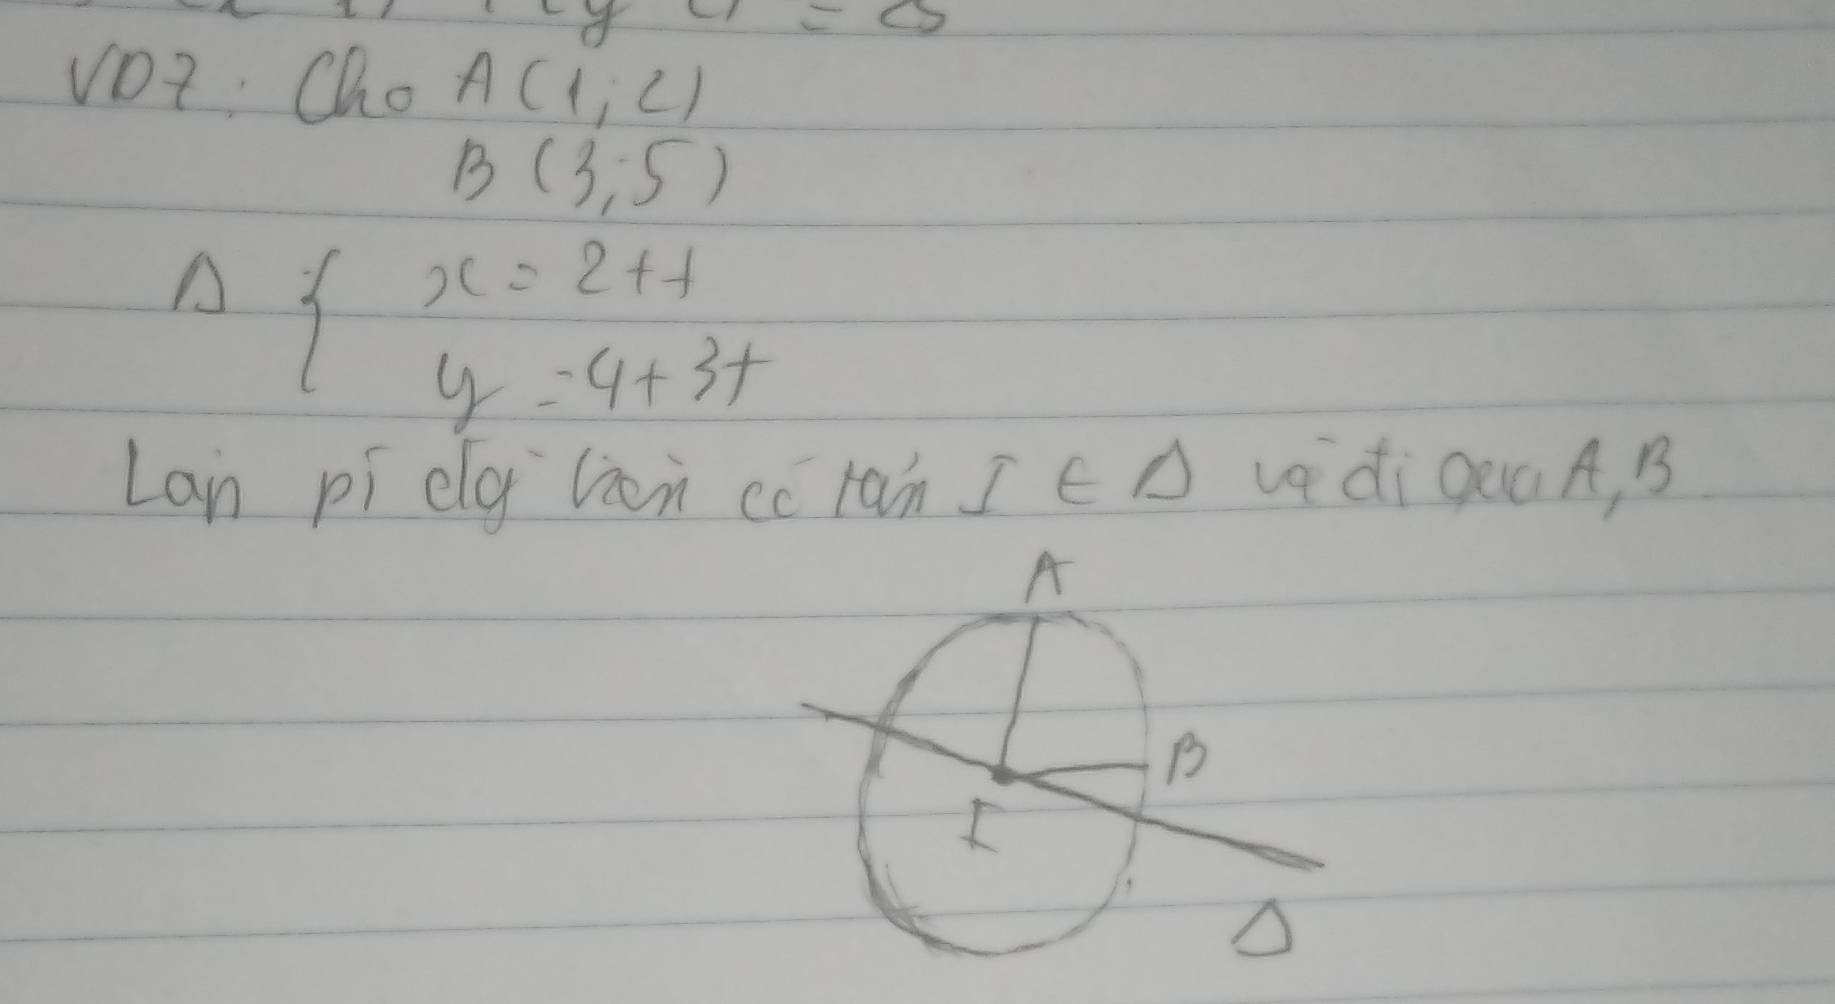 VD7: Cho A(1; 2)
B (3; 5)
Δ { x = 2 + t
y = 4 + 3t
Lập pt đg tròn có tâm I ∈ Δ và đi qua A, B
A
B
I
Δ